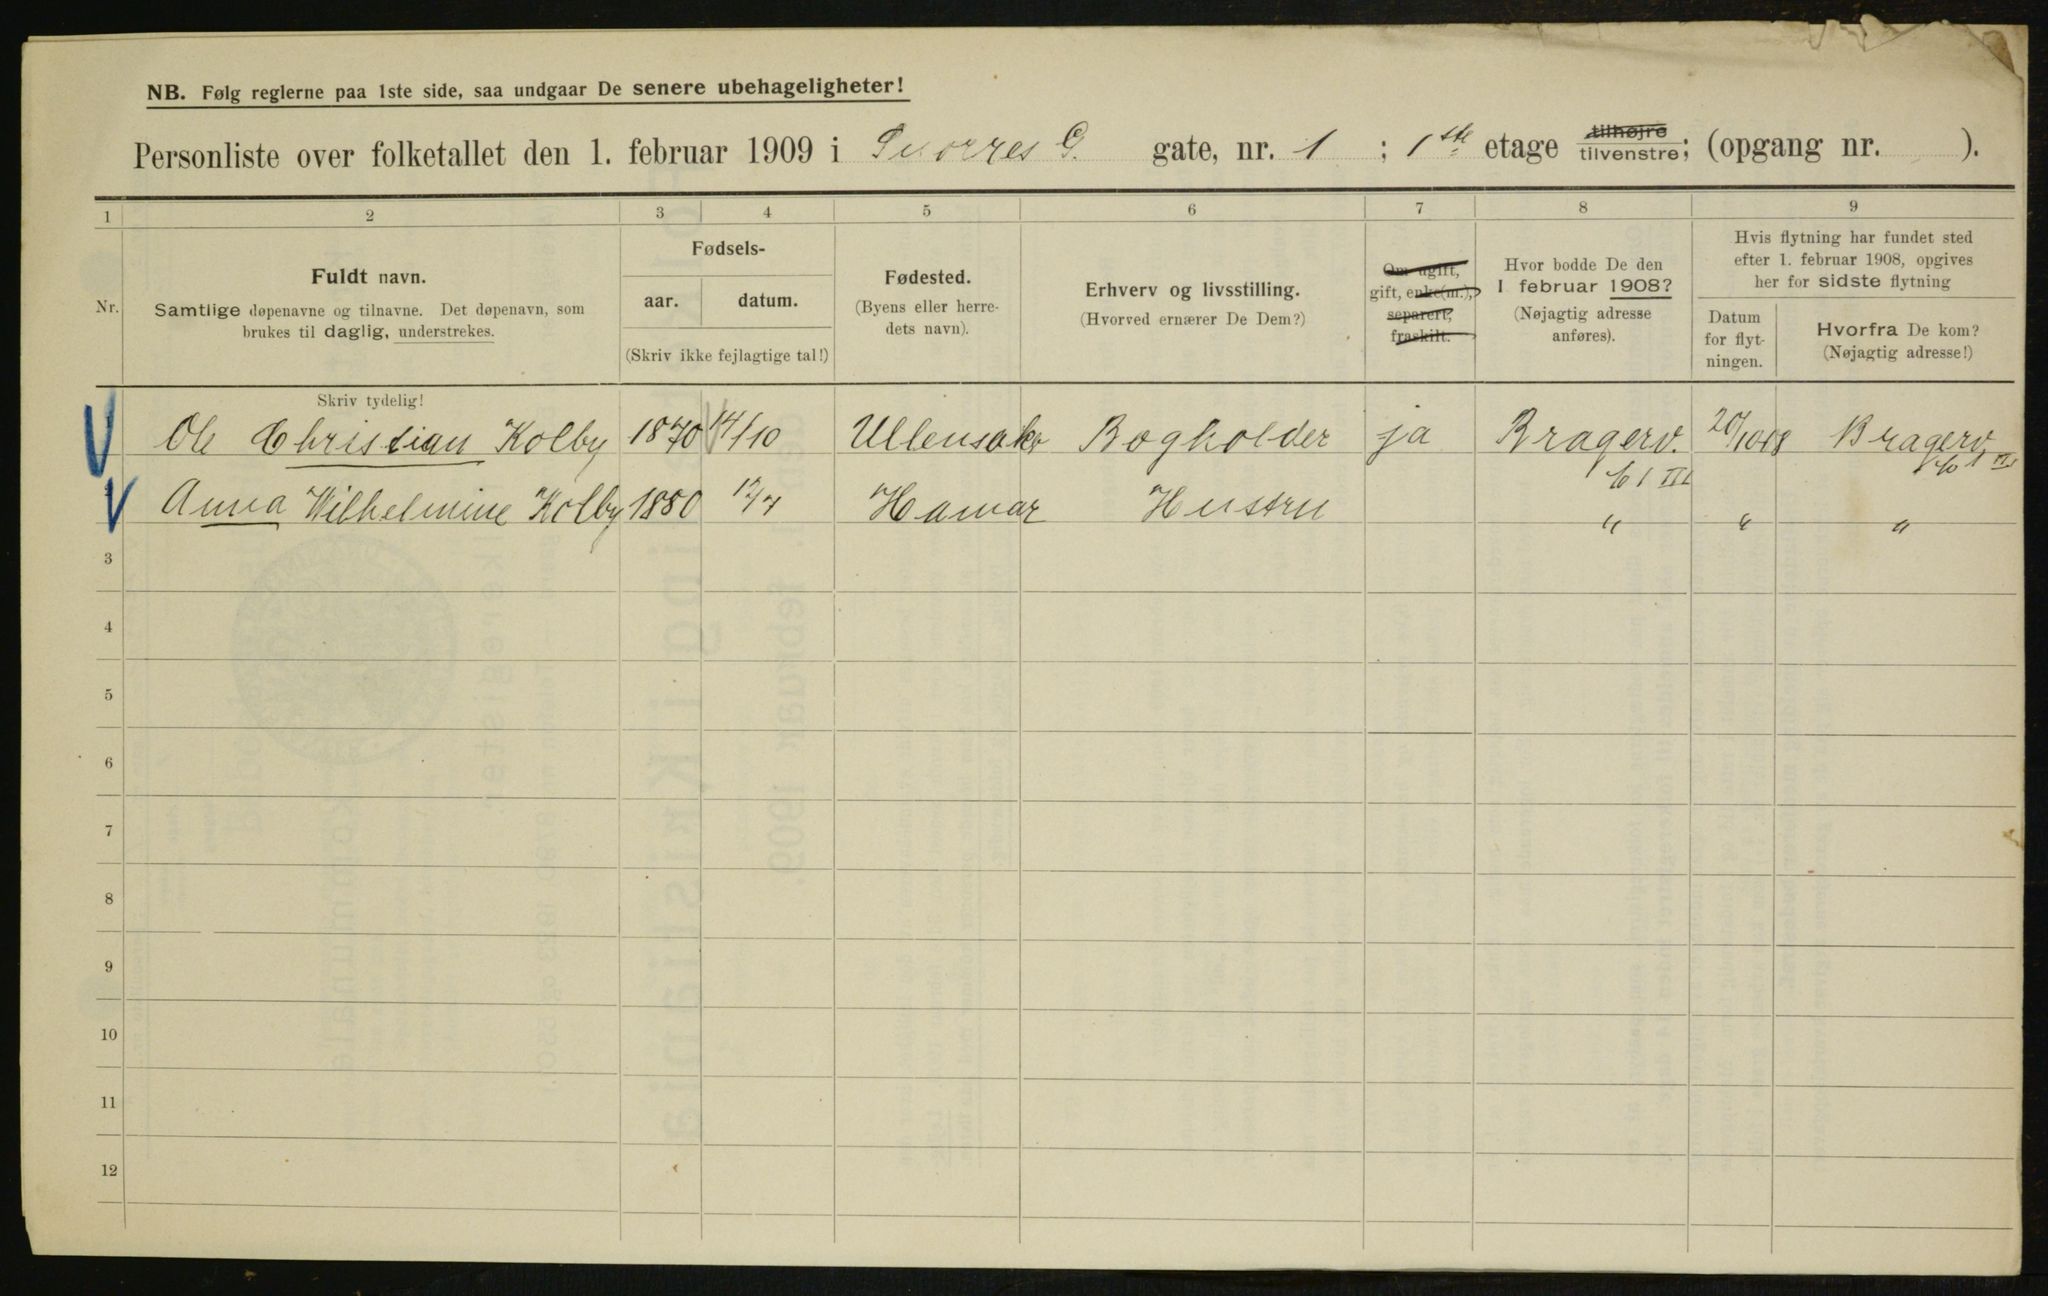 NB. Følg reglerne paa 1ste side, saa undgaar De senere ubehageligheter!
Personliste over folketallet den 1. februar 1909 i Snorres G. gate, nr. 1; 1ste etage tilhøjre tilvenstre; (opgang nr. ).
1 2 3 4 5 6 7 8 9
Nr.
Fuldt navn.
Samtlige døpenavne og tilnavne. Det døpenavn, som
brukes til daglig, understrekes.
Fødsels-
aar. datum.
(Skriv ikke fejlagtige tal!)
Fødested.
(Byens eller herre-
dets navn).
Erhverv og livsstilling.
(Hvorved ernærer De Dem?)
Om ugift,
gift, enke(m.),
separert,
fraskilt.
Hvor bodde De den
1 februar 1908?
(Nøjagtig adresse
anføres).
Hvis flytning har fundet sted
efter 1. februar 1908, opgives
her for sidste flytning
Datum
for flyt-
ningen.
Hvorfra De kom?
(Nøjagtig adresse!)
Skriv tydelig!
Ole Christian Kolby 1870 14/10 Ullensaker Bogholder ja Bragerv. 20/10 08 Bragerv.
1 III
Anna Wilhelmine Kolby 1880 12/7 Hamar Hustru " " "
3
4
5
6
7
8
9
10
11
12